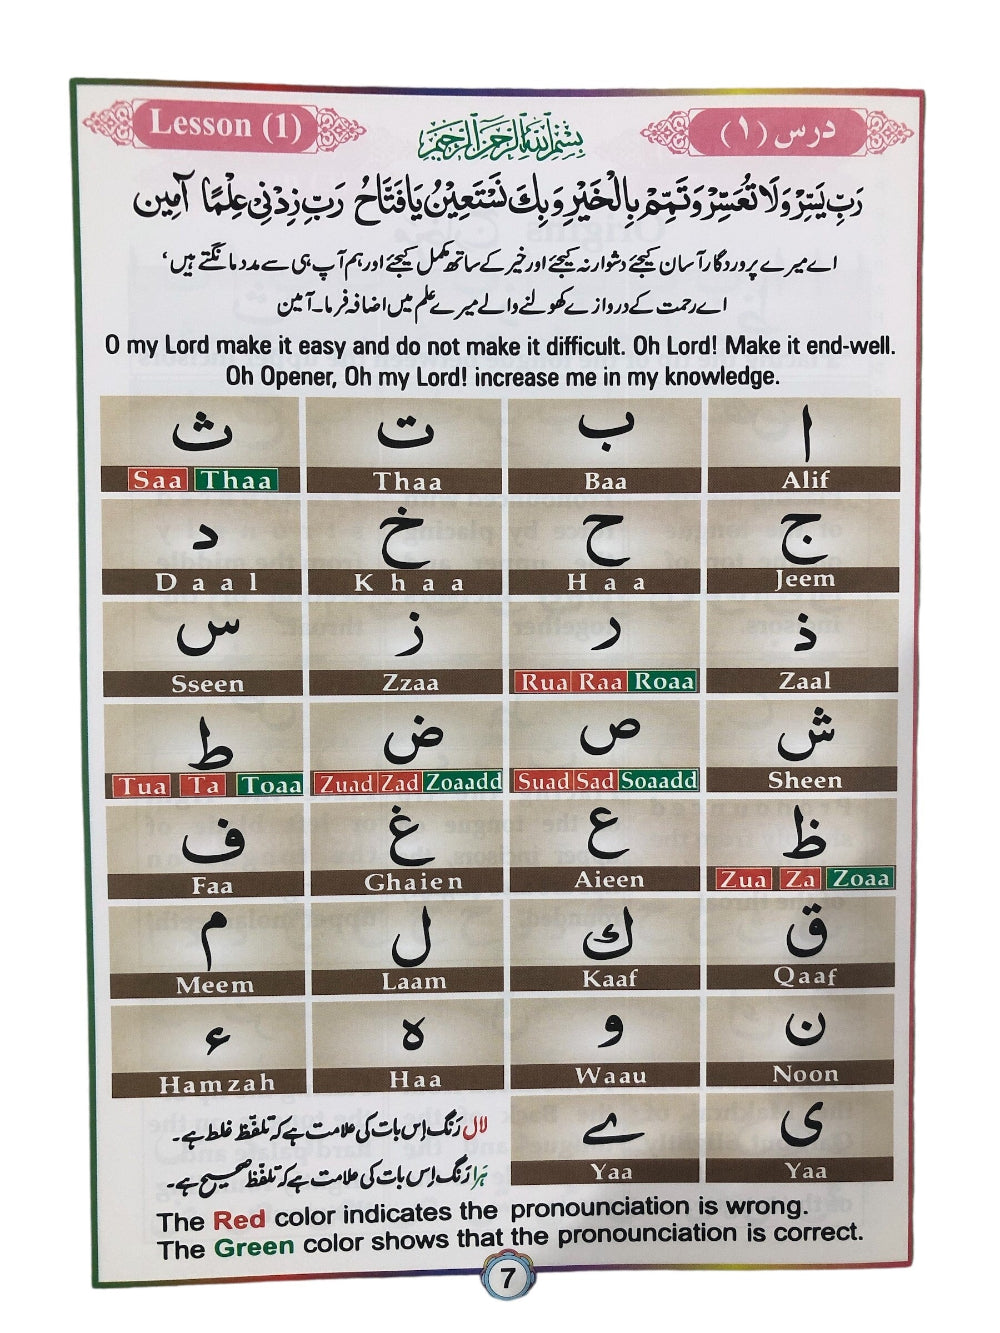 Lesson (1)
درس (۱)
بِسْمِ اللّٰهِ الرَّحْمٰنِ الرَّحِيْمِ
رَبِّ يَسِّرْ وَلَا تُعَسِّرْ وَتَمِّمْ بِالْخَيْرِ وَبِكَ نَسْتَعِيْنُ يَا فَتَّاحُ رَبِّ زِدْنِيْ عِلْمًا آمِين
اے میرے پروردگار آسان کیجئے دشوار نہ کیجئے اور خیر کے ساتھ مکمل کیجئے اور ہم آپ ہی سے مدد مانگتے ہیں،
اے رحمت کے دروازے کھولنے والے میرے علم میں اضافہ فرما۔ آمین
O my Lord make it easy and do not make it difficult. Oh Lord! Make it end-well.
Oh Opener, Oh my Lord! increase me in my knowledge.
ا ب ت ث
Alif Baa Thaa Thaa Saa
ج ح خ د
Jeem Haa Khaa Daal
ذ ر ز س
Zaal Rua Raa Roaa Zzaa Sseen
ش ص ض ط
Sheen Suad Sad Soaadd Zuad Zad Zoaadd Tua Ta Toaa
ظ ع غ ف
Zua Za Zoaa Aieen Ghaien Faa
ق ك ل م
Qaaf Kaaf Laam Meem
ن و ه ء
Noon Waau Haa Hamzah
ی ے
Yaa Yaa
لال رَنگ اِس بات کی علامت ہے کہ تلفّظ غلط ہے۔
ہَرا رَنگ اِس بات کی علامت ہے کہ تلفّظ صحیح ہے۔
The Red color indicates the pronounciation is wrong.
The Green color shows that the pronounciation is correct.
7